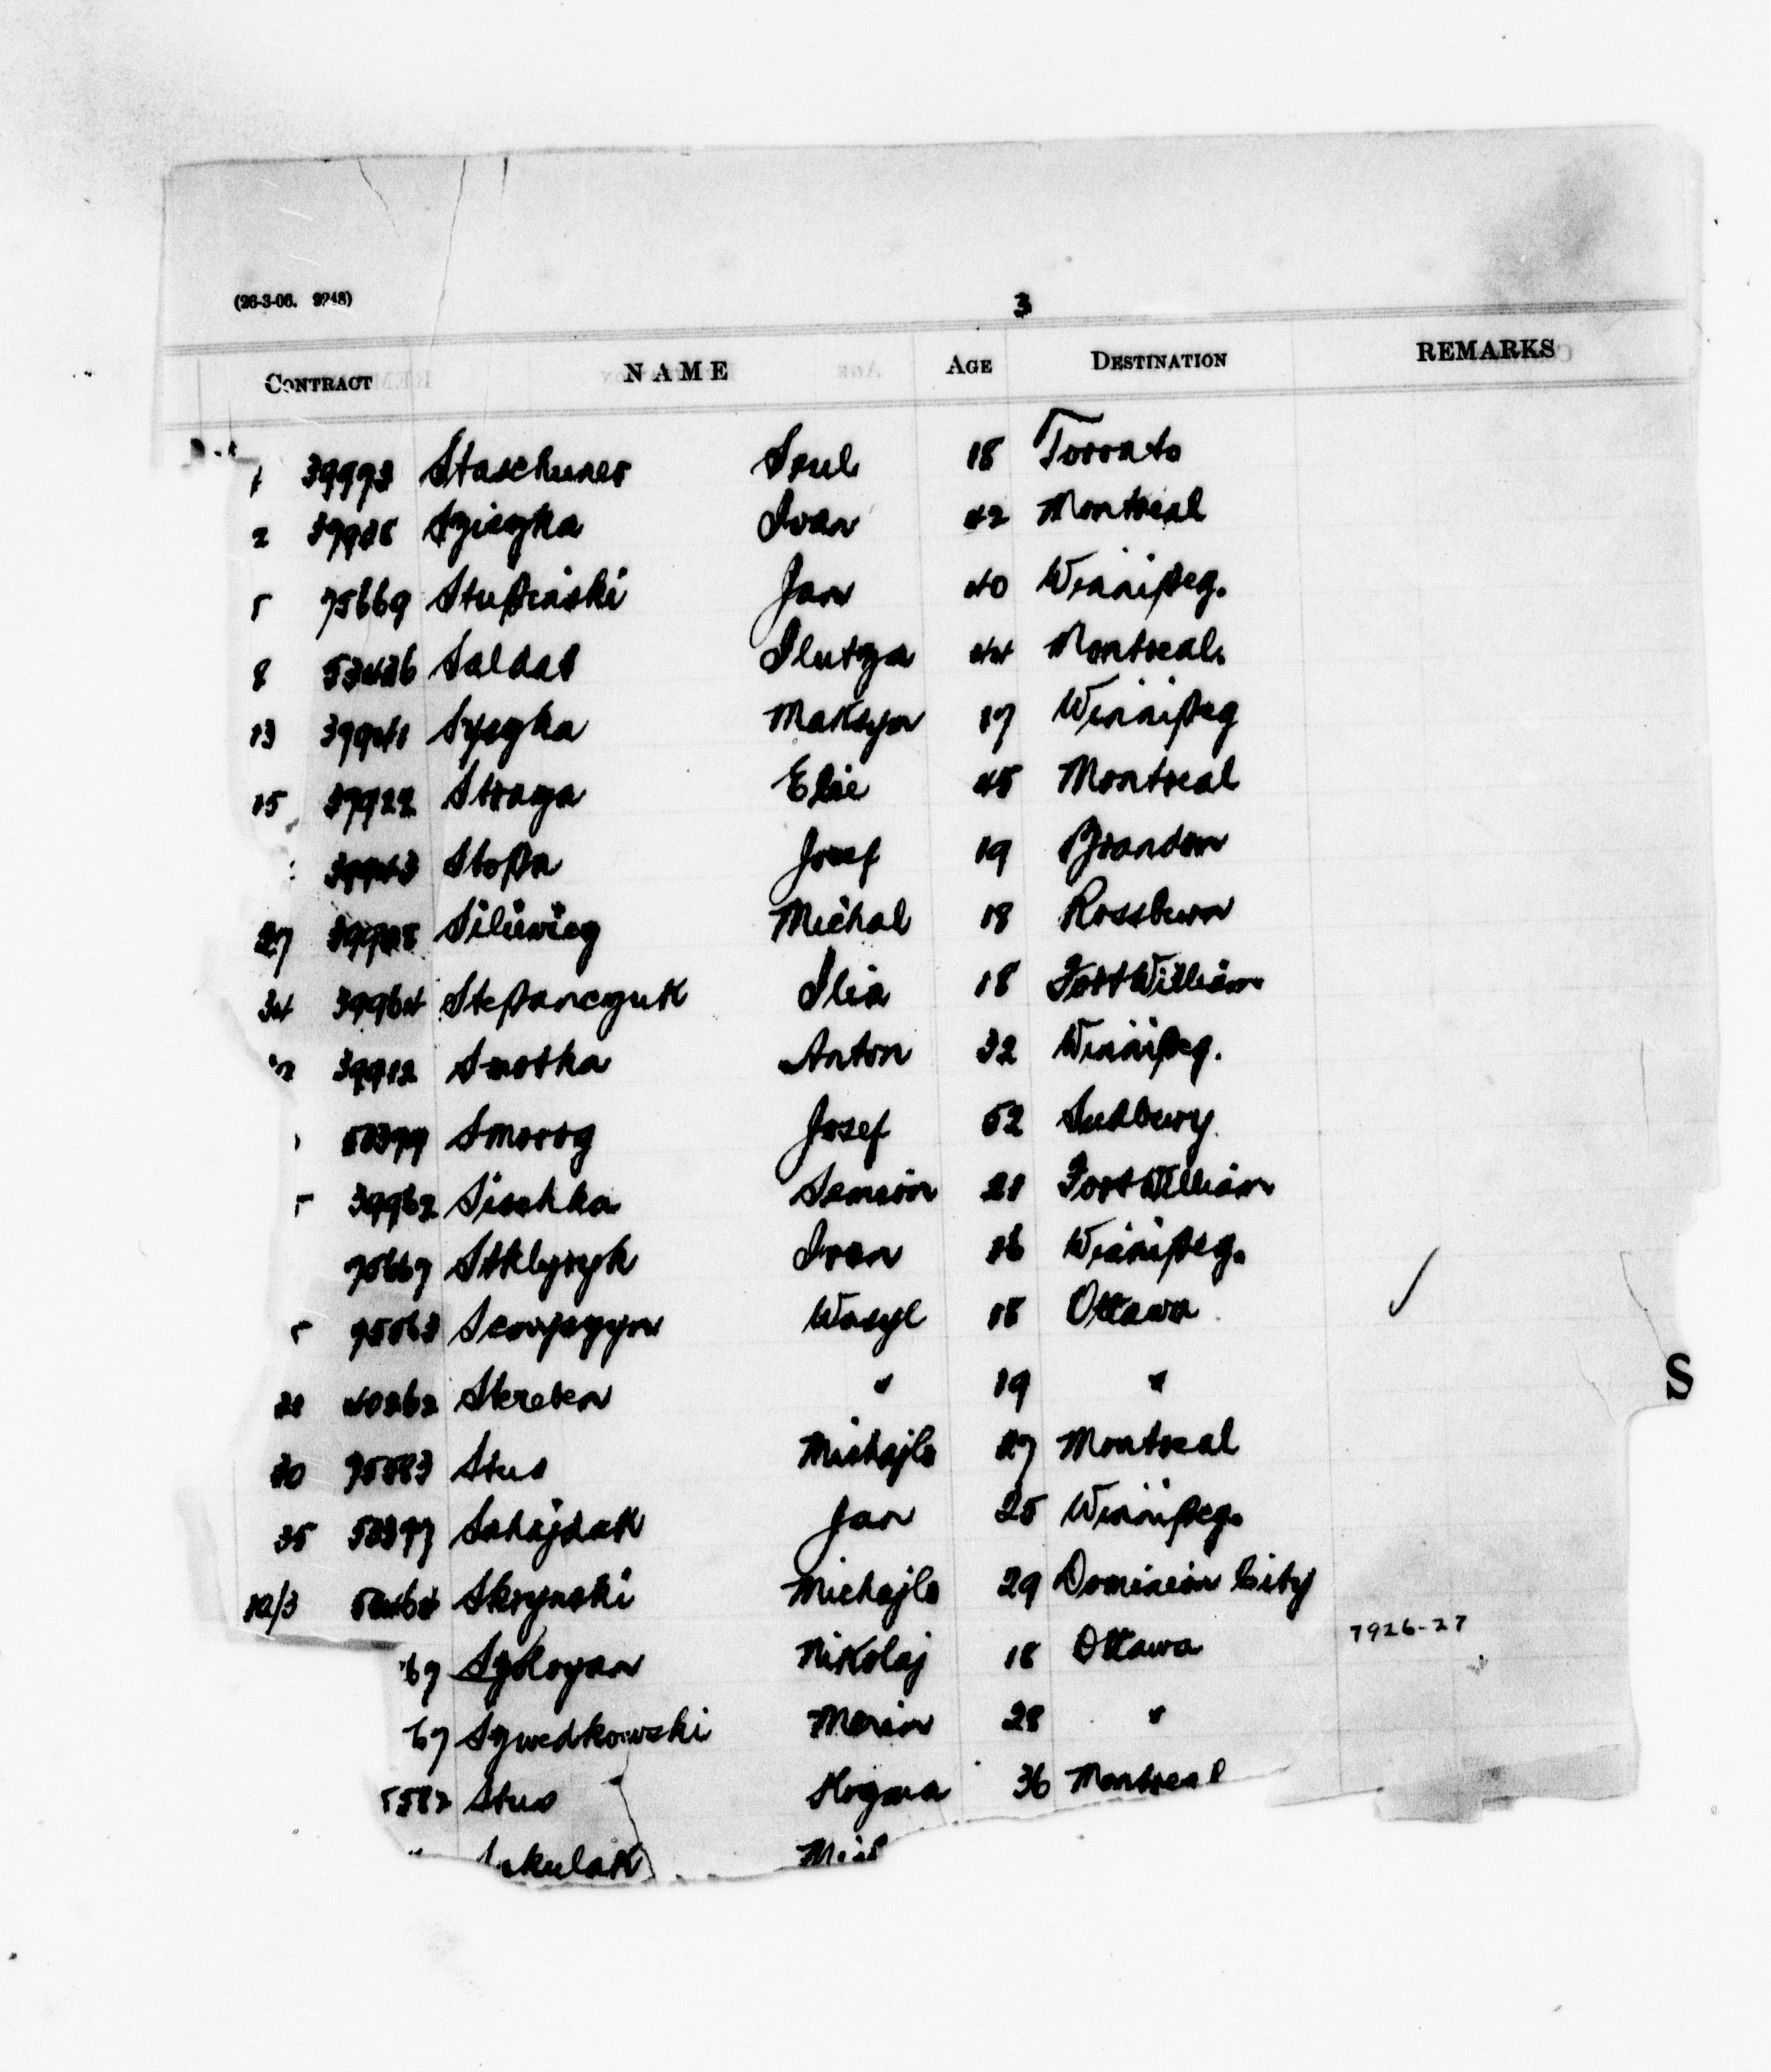 (26-3-06. 9248)
3
CONTRACT NAME AGE DESTINATION REMARKS
1 39993 Staschuner Srul 18 Toronto
2 Sziczka Ivan 42 Montreal
5 75669 Stupinski Jan 40 Winnipeg.
8 53436 Saldat Ilutza 44 Montreal.
13 39941 Syczka Maksym 17 Winnipeg
15 39922 Straga Elie 45 Montreal
39943 Stopa Josef 19 Brandon
27 Michal 18 Rossburn
34 39964 Stepanczuk Ilia 18 Fort William
39912 Anton 32 Winnipeg.
50399 Smorog Josef 52 Sudbury.
39962 Sischka Semion 28 Fort William
75667 Stklyryk Ivan 16 Winnipeg.
Wasyl 18 Ottawa
40262 Skreben " 19 "
30 75583 Stus Michajlo 27 Montreal
35 50397 Sahajdak Jan 25 Winnipeg.
10/3 50464 Skrynski Michajlo 29 Dominion City
67 Nikolaj 18 Ottawa 7926-27
67 Szwedkowski 28 "
5582 Stus 36 Montreal
S